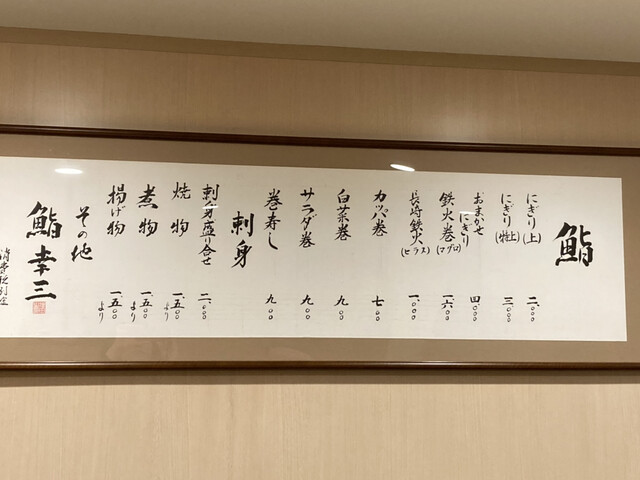 鮨
にぎり(上) 二、〇〇〇
にぎり(特上) 三、〇〇〇
おまかせにぎり 四、〇〇〇
鉄火巻(マグロ) 一、六〇〇
長崎鉄火(ヒラス) 一、〇〇〇
カッパ巻 七〇〇
白菜巻 九〇〇
サラダ巻 九〇〇
巻寿し 九〇〇
刺身
刺身盛り合せ 二、〇〇〇
焼物 一、五〇〇より
煮物 一、五〇〇より
揚げ物 一、五〇〇より
その他
鮨幸三
消費税別途